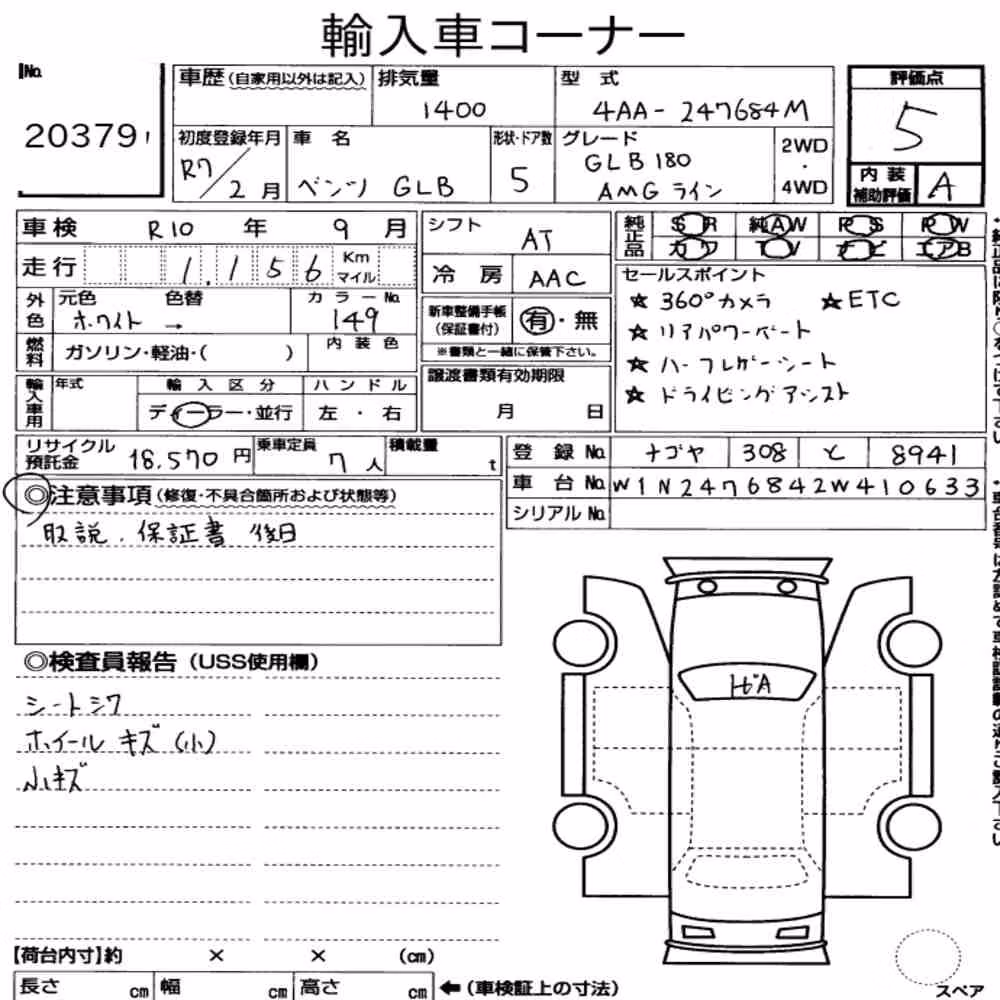 輸入車コーナー
No. 20379
車歴(自家用以外は記入) 排気量 1400 型式 4AA-247684M 評価点 5
初度登録年月 R7/2月 車名 ベンツ GLB 形状・ドア数 5 グレード GLB180 AMGライン 2WD・4WD
内装補助評価 A
車検 R10年 9月 シフト AT 純正品 SR 純AW PS PW
カワ TV ナビ エアB
走行 1,156 Km マイル 冷房 AAC
セールスポイント
☆360°カメラ ☆ETC
☆リアパワーゲート
☆ハーフレザーシート
☆ドライビングアシスト
外色 元色 ホワイト 色替 → カラーNo. 149
新車整備手帳(保証書付) 有・無
※書類と一緒に保管下さい。
燃料 ガソリン・軽油・( ) 内装色
譲渡書類有効期限 月 日
輸入車用 年式 輸入区分 ディーラー・並行 ハンドル 左・右
リサイクル預託金 18,570円 乗車定員 7人 積載量 t
登録No. ナゴヤ 308 と 8941
車台No. W1N2476842W410633
シリアルNo.
◎注意事項(修復・不具合箇所および状態等)
取説.保証書 後日
◎検査員報告(USS使用欄)
シートシワ
ホイールキズ(小)
小キズ
【荷台内寸】約 × × (cm)
長さ cm 幅 cm 高さ cm ←(車検証上の寸法)
スペア